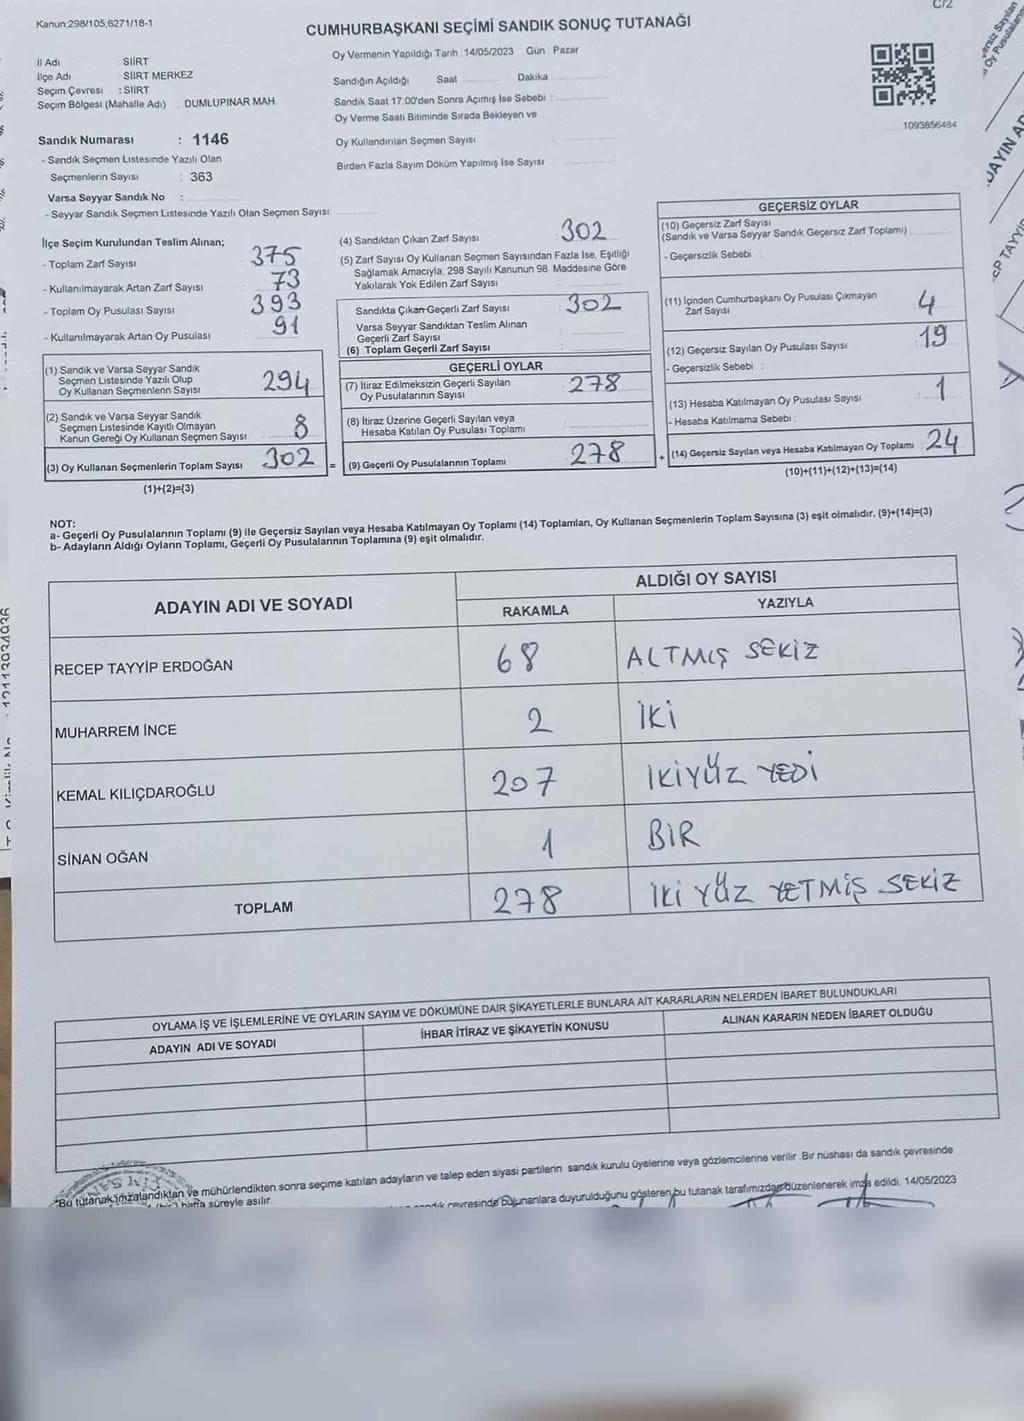 Kanun:298/105,6271/18-1
C/2
CUMHURBAŞKANI SEÇİMİ SANDIK SONUÇ TUTANAĞI
İl Adı SİİRT
İlçe Adı SİİRT MERKEZ
Seçim Çevresi : SİİRT
Seçim Bölgesi (Mahalle Adı) : DUMLUPINAR MAH.
Sandık Numarası : 1146
- Sandık Seçmen Listesinde Yazılı Olan
Seçmenlerin Sayısı : 363
Varsa Seyyar Sandık No :
- Seyyar Sandık Seçmen Listesinde Yazılı Olan Seçmen Sayısı:
Oy Vermenin Yapıldığı Tarih : 14/05/2023 Gün : Pazar
Sandığın Açıldığı Saat Dakika
Sandık Saat 17:00'den Sonra Açımış İse Sebebi :
Oy Verme Saati Bitiminde Sırada Bekleyen ve
Oy Kullandırılan Seçmen Sayısı :
Birden Fazla Sayım Döküm Yapılmış İse Sayısı :
1093856484
İlçe Seçim Kurulundan Teslim Alınan;
- Toplam Zarf Sayısı : 375
- Kullanılmayarak Artan Zarf Sayısı : 73
- Toplam Oy Pusulası Sayısı : 393
- Kullanılmayarak Artan Oy Pusulası : 91
(1) Sandık ve Varsa Seyyar Sandık
Seçmen Listesinde Yazılı Olup
Oy Kullanan Seçmenlerin Sayısı 294
(2) Sandık ve Varsa Seyyar Sandık
Seçmen Listesinde Kayıtlı Olmayan
Kanun Gereği Oy Kullanan Seçmen Sayısı 8
(3) Oy Kullanan Seçmenlerin Toplam Sayısı 302
(1)+(2)=(3)
(4) Sandıktan Çıkan Zarf Sayısı : 302
(5) Zarf Sayısı Oy Kullanan Seçmen Sayısından Fazla İse, Eşitliği
Sağlamak Amacıyla; 298 Sayılı Kanunun 98. Maddesine Göre
Yakılarak Yok Edilen Zarf Sayısı :
Sandıkta Çıkan Geçerli Zarf Sayısı : 302
Varsa Seyyar Sandıktan Teslim Alınan
Geçerli Zarf Sayısı :
(6) Toplam Geçerli Zarf Sayısı :
GEÇERLİ OYLAR
(7) İtiraz Edilmeksizin Geçerli Sayılan
Oy Pusulalarının Sayısı : 278
(8) İtiraz Üzerine Geçerli Sayılan veya
Hesaba Katılan Oy Pusulası Toplamı :
= (9) Geçerli Oy Pusulalarının Toplamı : 278
GEÇERSİZ OYLAR
(10) Geçersiz Zarf Sayısı
(Sandık ve Varsa Seyyar Sandık Geçersiz Zarf Toplamı) :
- Geçersizlik Sebebi :
(11) İçinden Cumhurbaşkanı Oy Pusulası Çıkmayan
Zarf Sayısı : 4
(12) Geçersiz Sayılan Oy Pusulası Sayısı : 19
- Geçersizlik Sebebi :
(13) Hesaba Katılmayan Oy Pusulası Sayısı : 1
- Hesaba Katılmama Sebebi :
+ (14) Geçersiz Sayılan veya Hesaba Katılmayan Oy Toplamı : 24
(10)+(11)+(12)+(13)=(14)
NOT:
a- Geçerli Oy Pusulalarının Toplamı (9) ile Geçersiz Sayılan veya Hesaba Katılmayan Oy Toplamı (14) Toplamları, Oy Kullanan Seçmenlerin Toplam Sayısına (3) eşit olmalıdır. (9)+(14)=(3)
b- Adayların Aldığı Oyların Toplamı, Geçerli Oy Pusulalarının Toplamına (9) eşit olmalıdır.
ADAYIN ADI VE SOYADI
ALDIĞI OY SAYISI
RAKAMLA YAZIYLA
RECEP TAYYİP ERDOĞAN 68 ALTMIŞ SEKİZ
MUHARREM İNCE 2 İKİ
KEMAL KILIÇDAROĞLU 207 İKİYÜZ YEDİ
SİNAN OĞAN 1 BİR
TOPLAM 278 İKİ YÜZ YETMİŞ SEKİZ
OYLAMA İŞ VE İŞLEMLERİNE VE OYLARIN SAYIM VE DÖKÜMÜNE DAİR ŞİKAYETLERLE BUNLARA AİT KARARLARIN NELERDEN İBARET BULUNDUKLARI
ADAYIN ADI VE SOYADI İHBAR İTİRAZ VE ŞİKAYETİN KONUSU ALINAN KARARIN NEDEN İBARET OLDUĞU
*Bu tutanak imzalandıktan ve mühürlendikten sonra seçime katılan adayların ve talep eden siyasi partilerin sandık kurulu üyelerine veya gözlemcilerine verilir .Bir nüshası da sandık çevresinde
hafta süreyle asılır.
sandık çevresinde bulunanlara duyurulduğunu gösteren bu tutanak tarafımızdan düzenlenerek imza edildi. 14/05/2023